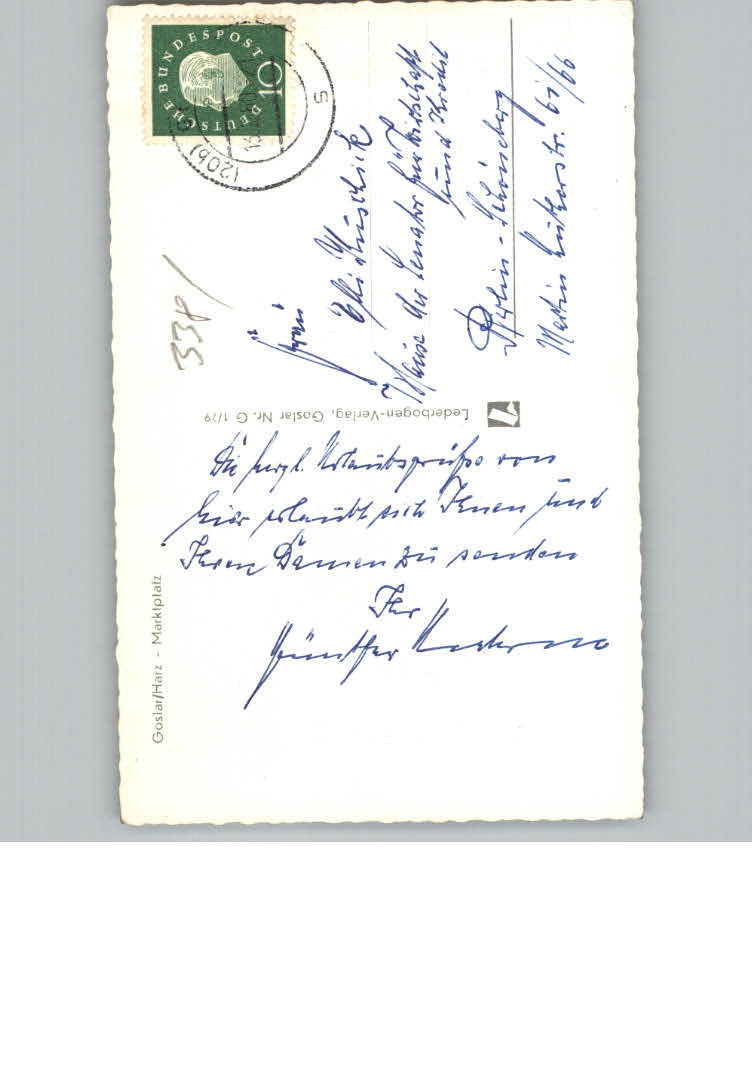 DEUTSCHE BUNDESPOST
10
(20b)
s
338/
Frau
Elli
Hause der Senator für Wirtschaft
und Kredit
Berlin - Schöneberg
Martin Lutherstr. 61/66
Lederbogen-Verlag, Goslar Nr. G 1/29
Die herzl. Urlaubsgrüße von
hier erlaubt sich Ihnen und
Ihren Damen zu senden
Ihr
Günther
Goslar/Harz - Marktplatz